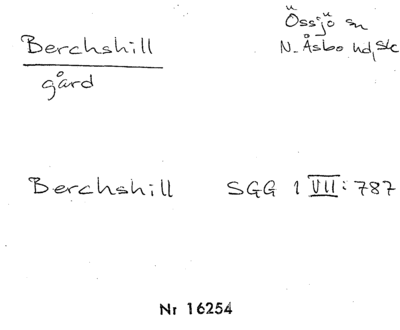 Berchshill
gård
Össjö sn
N. Åsbo hd, Sk
Berchshill SGG 1 VII: 787
Nr 16254